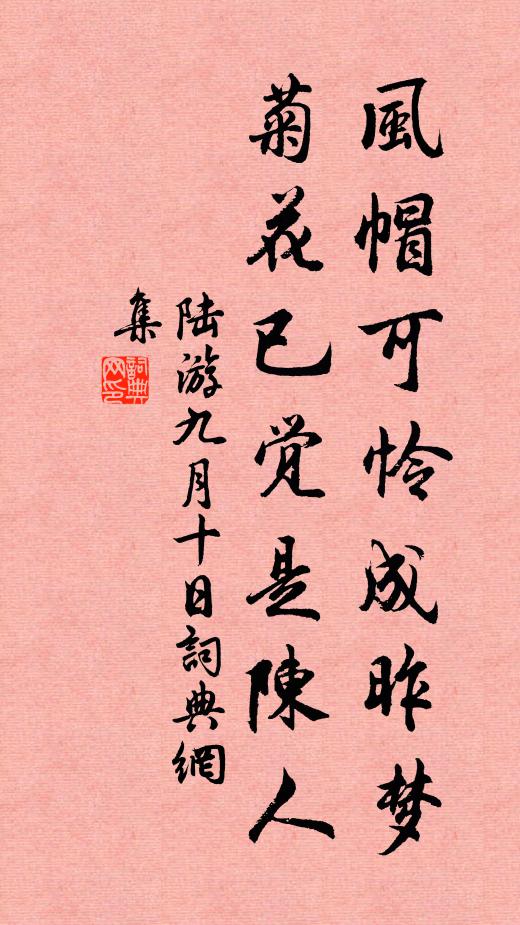 風帽可怜成昨梦
菊花已觉是陳人
陆游九月十日詞典網
集
詞典
网印